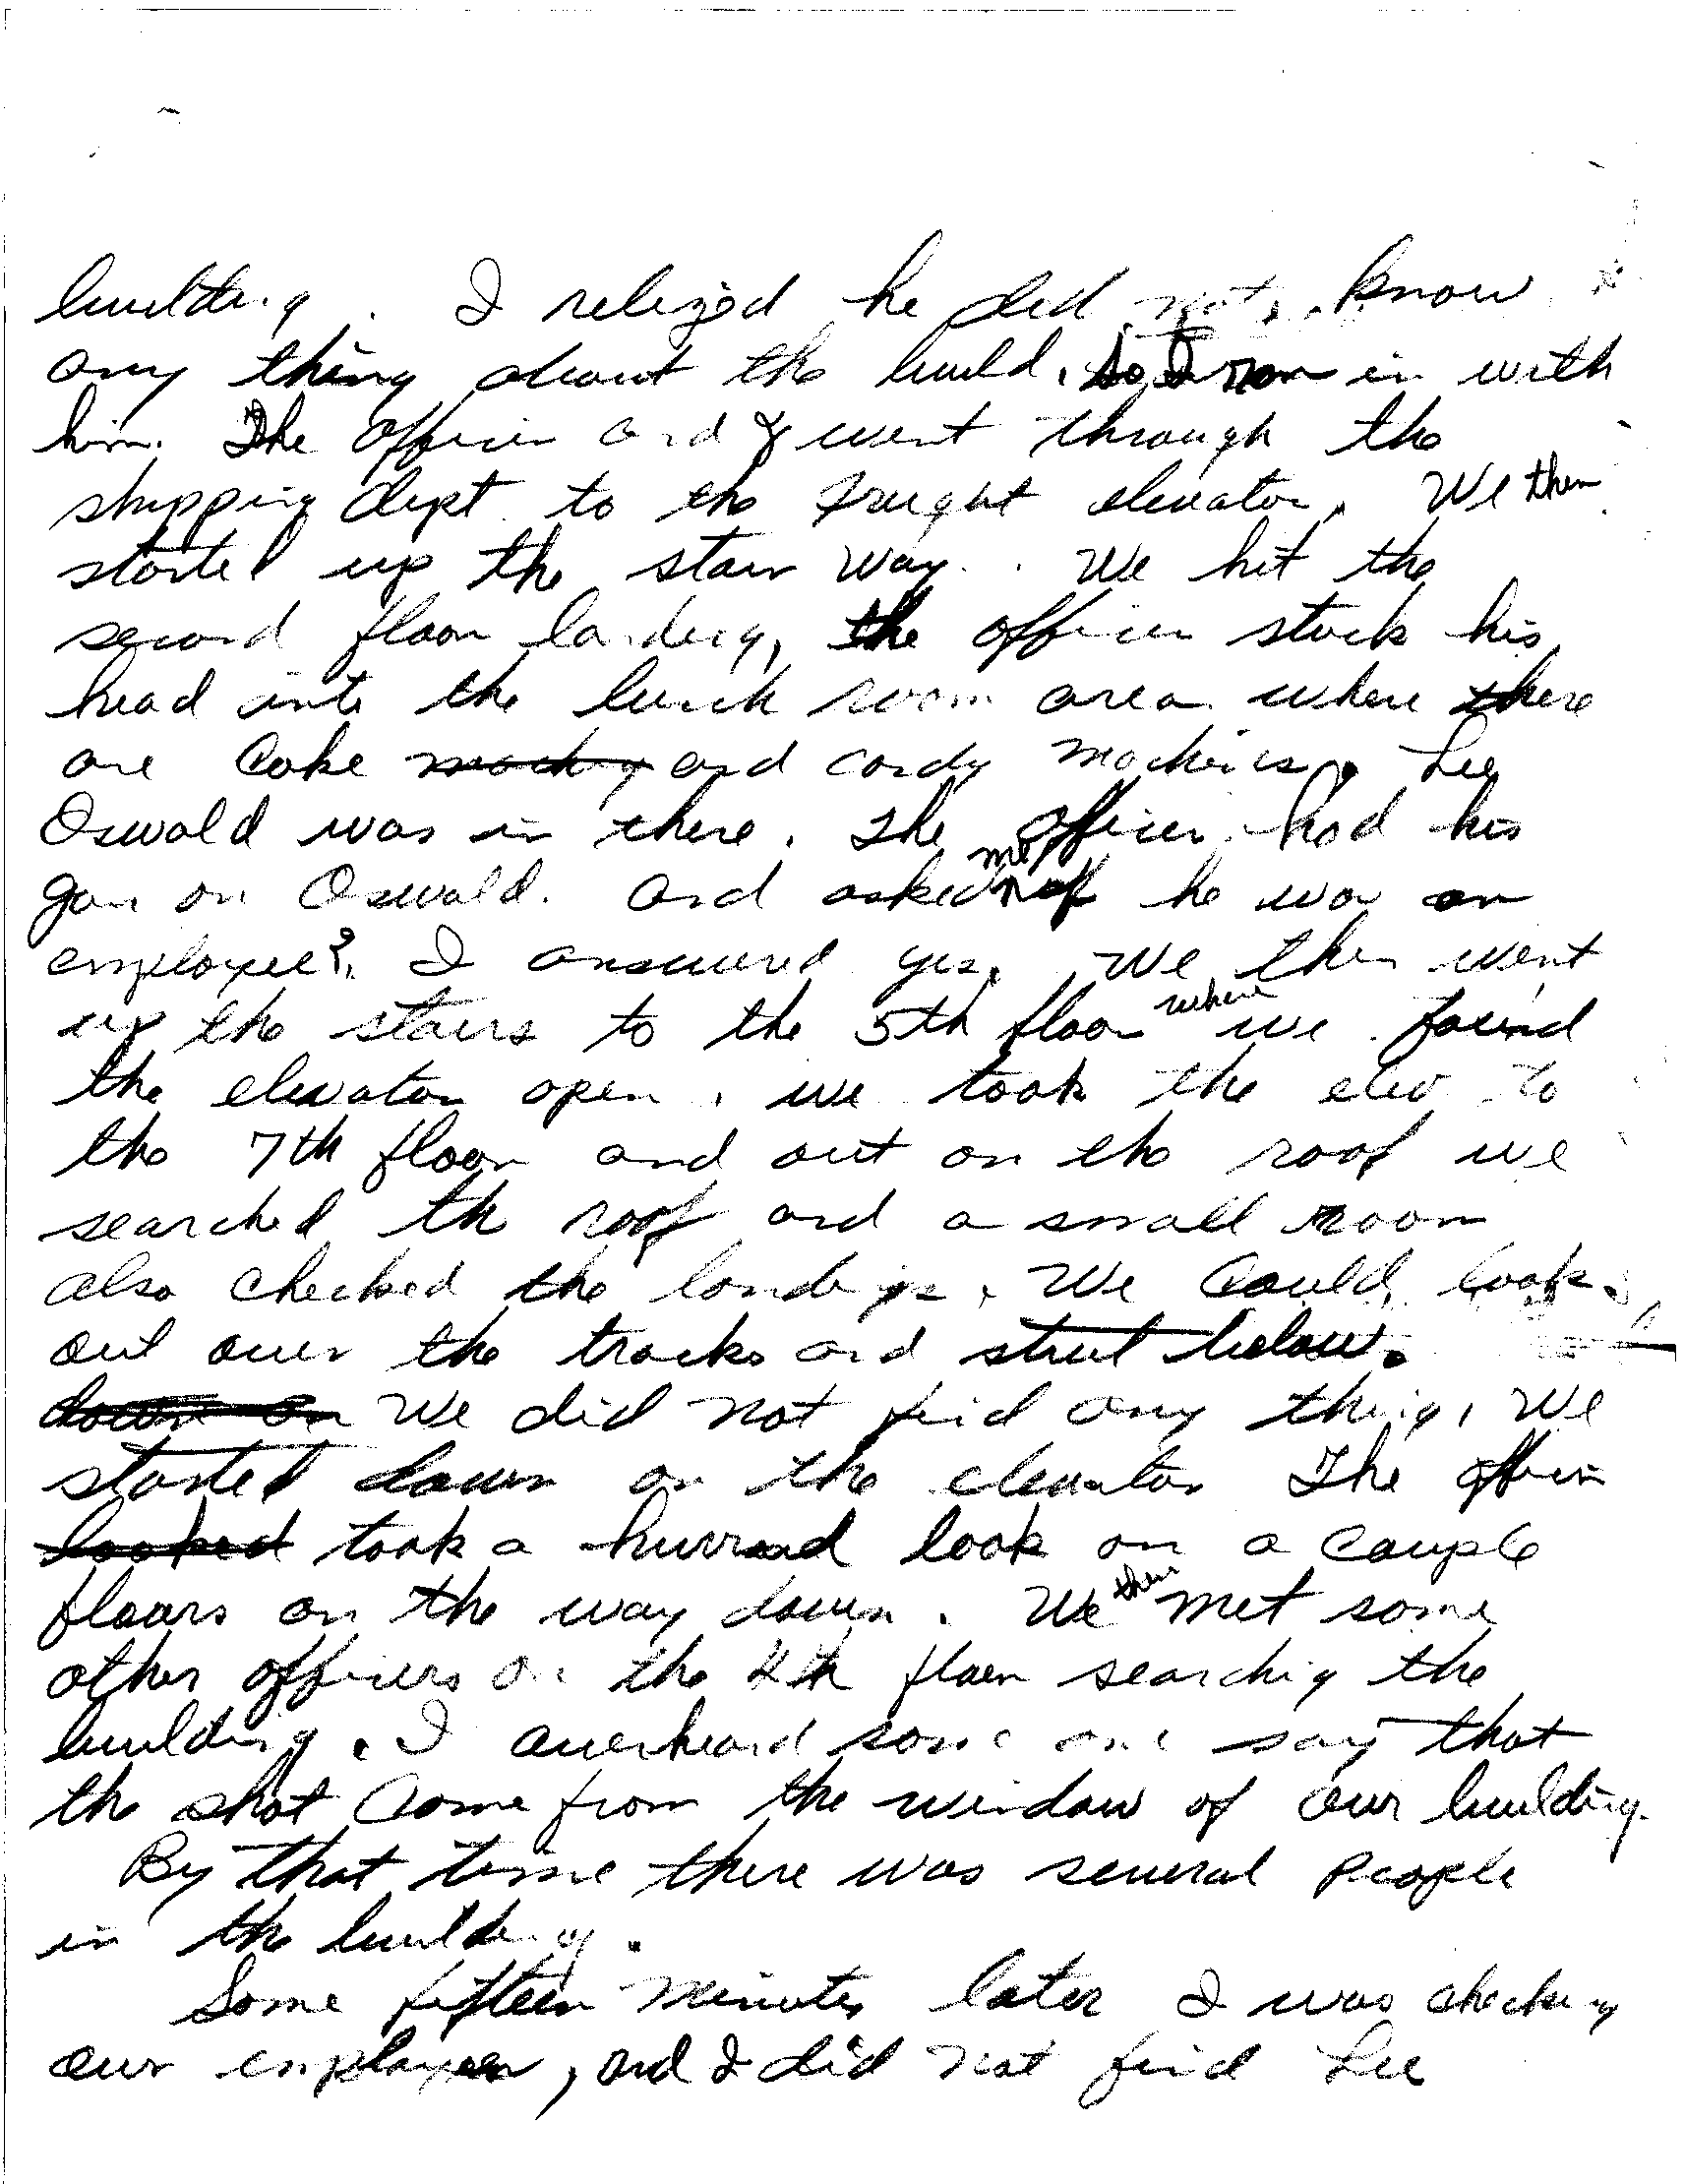 building. I relized he did not know
any thing about the build. so I ran in with
him. The officer and I went through the
shipping dept. to the fraight elevator. We then
started up the stair way. We hit the
second floor landing, the officer stuck his
head into the lunch room area where there
are Coke and candy machines. Lee
Oswald was in there. The officer had his
gun on Oswald. and asked me if he was an
employee?. I answered yes. We then went
up the stairs to the 5th floor where we found
the elevator open. we took the elev to
the 7th floor and out on the roof we
searched the roof and a small room
also checked the landings. We could look
out over the tracks and street below.
We did not find any thing, We
started down on the elevator The officer
looked took a hurried look on a couple
floors on the way down. We then met some
other officers on the 4th floor searching the
building. I overheard some one say that
the shot came from the window of our building.
By that time there was several people
in the building.
Some fifteen minutes later I was checking
our employees, and I did not find Lee